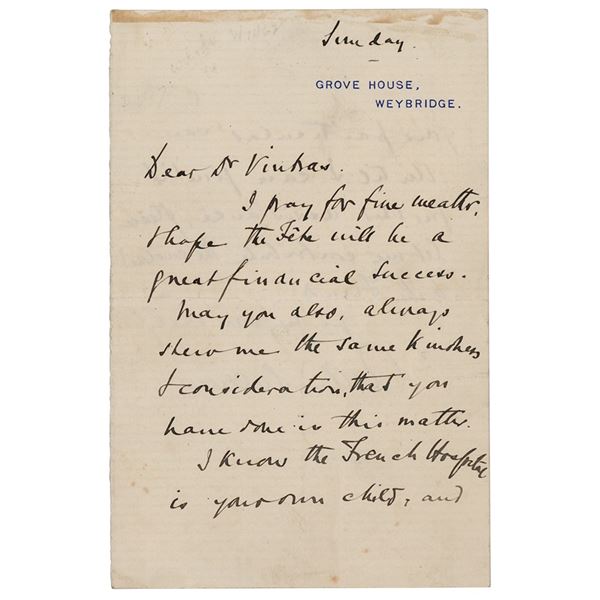 Sunday.
GROVE HOUSE,
WEYBRIDGE.
Dear Dr Vintras.
I pray for fine weather,
& hope the Fête will be a
great financial success.
May you also, always
shew me the same kindness
& consideration, that you
have done in this matter.
I know the French Hospital
is your own child, and